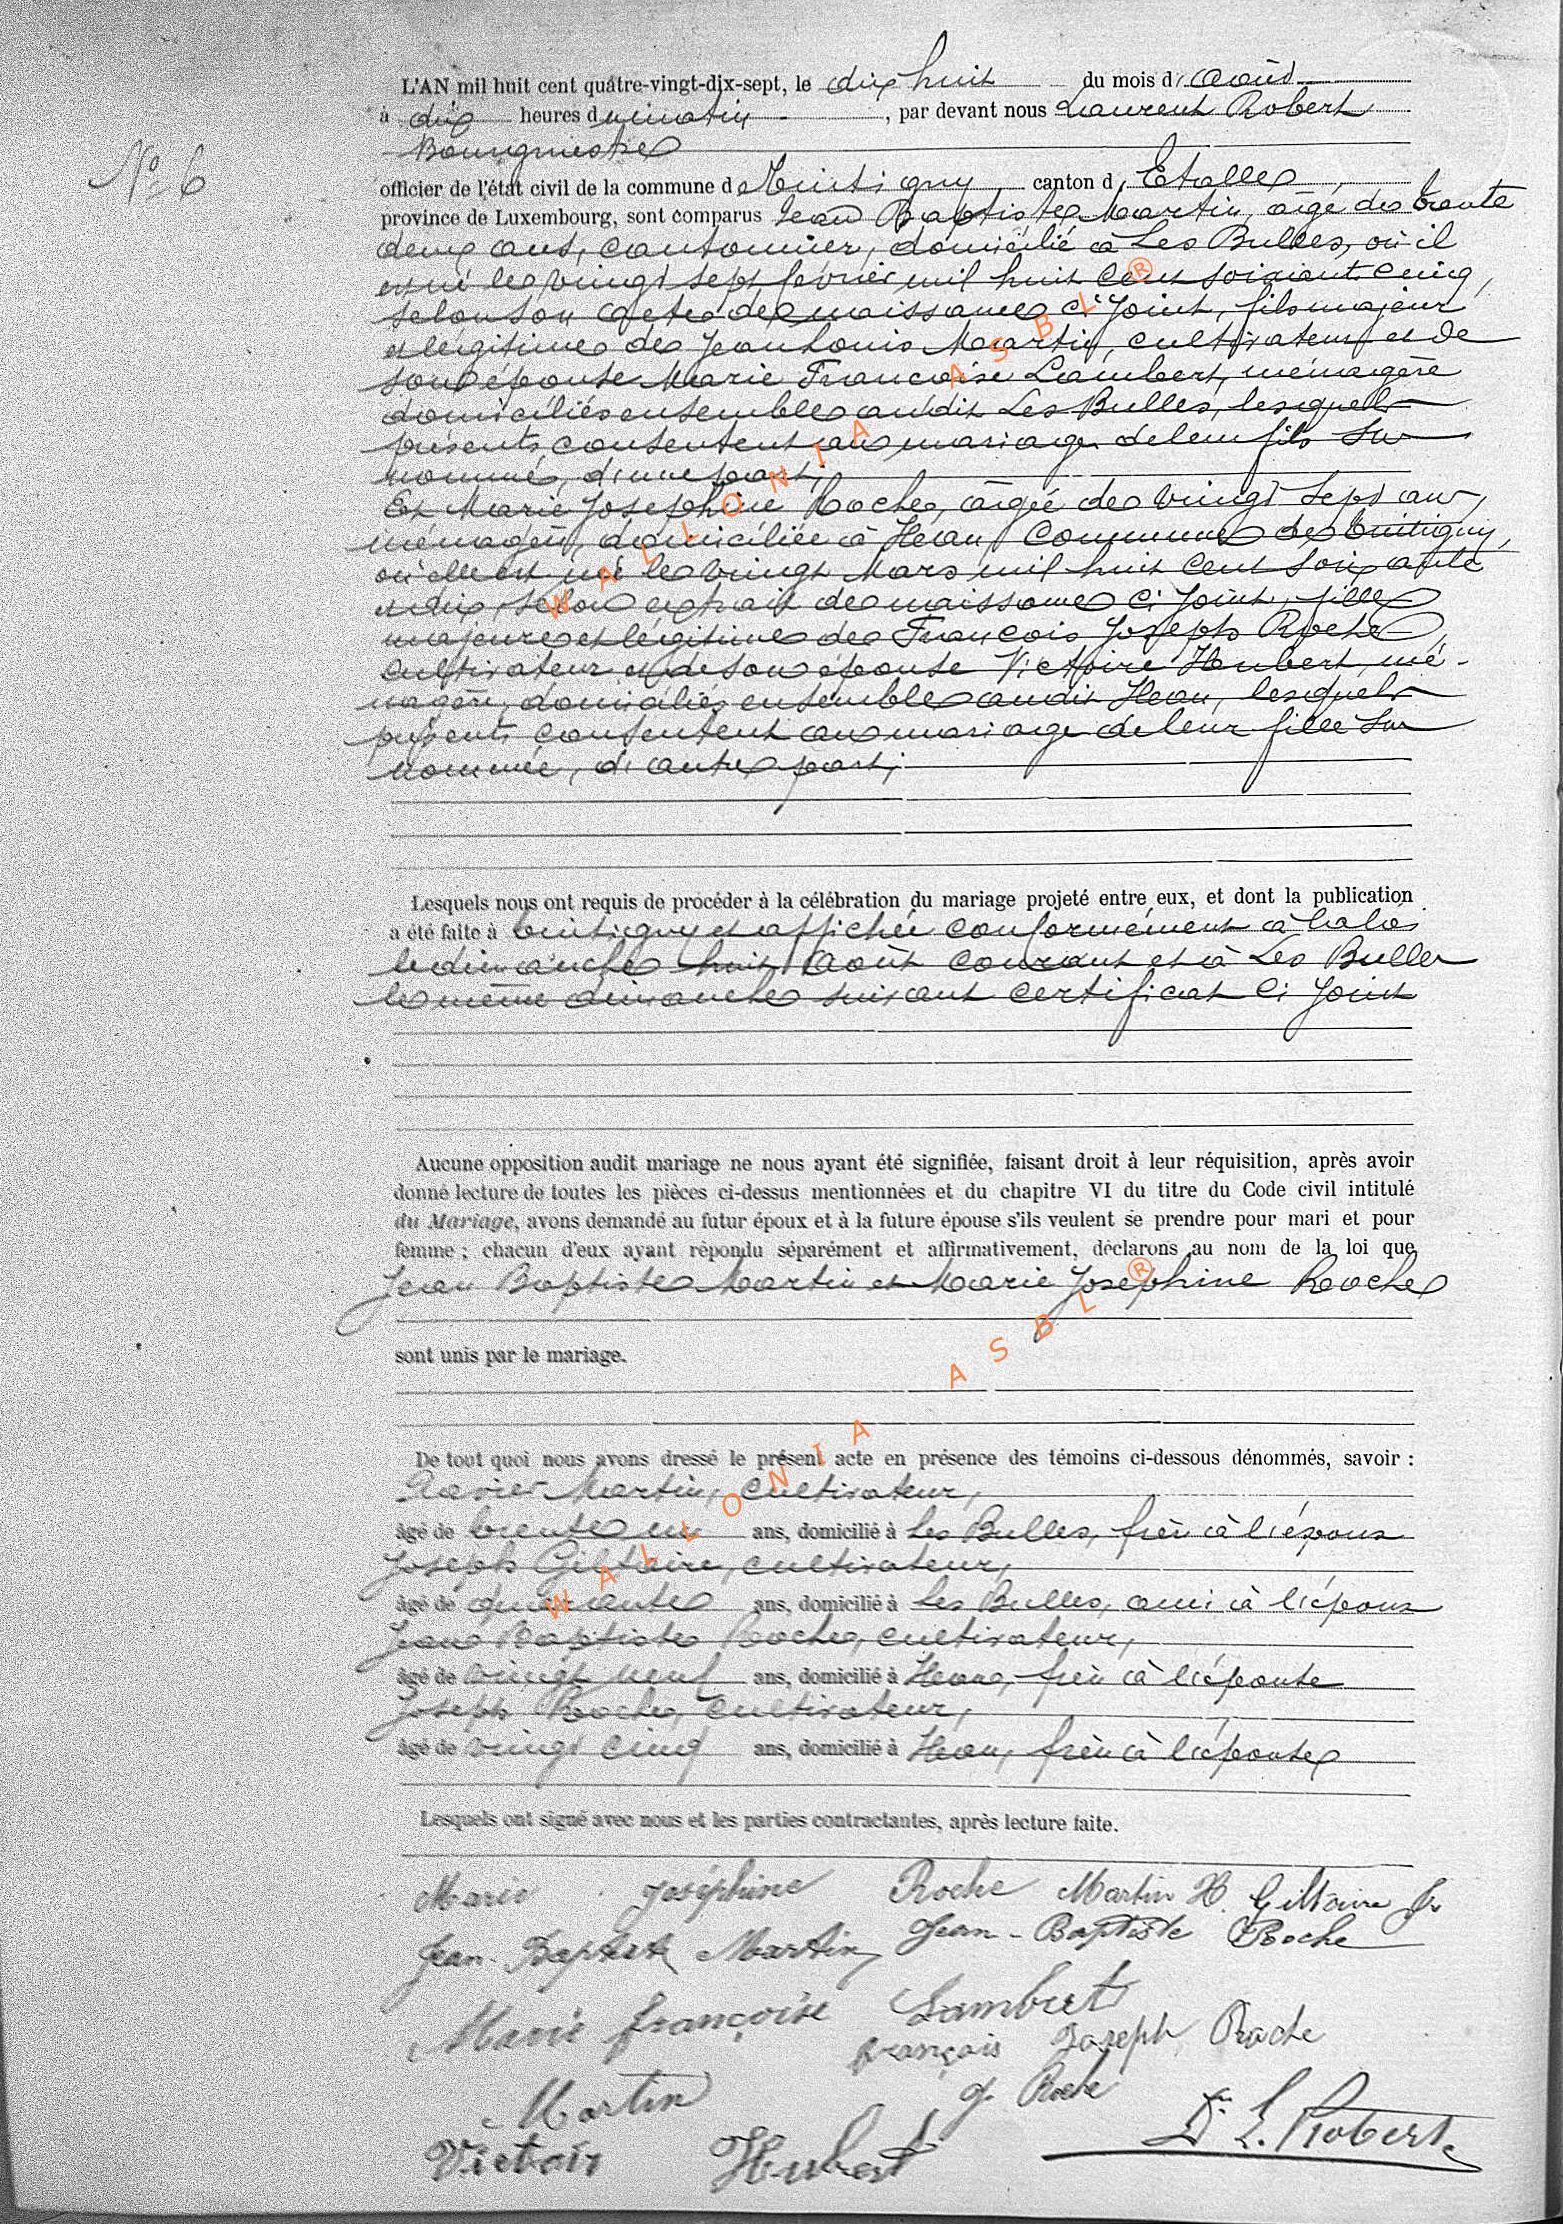 L'AN mil huit cent quatre-vingt-dix-sept, le dix huit du mois d'août
à dix heures du matin, par devant nous Laurent Robert
Bourgmestre
N° 6
officier de l'état civil de la commune de Tintigny, canton d'Etalle,
province de Luxembourg, sont comparus Jean Baptiste Martin, âgé de trente
deux ans, cantonnier, domicilié à Les Bulles, où il
est né le vingt sept février mil huit cent soixante cinq,
selon son acte de naissance ci joint, fils majeur
et légitime de Jean Louis Martin, cultivateur et de
son épouse Marie Françoise Lambert, ménagère
domiciliés ensemble audit Les Bulles, lesquels
présents consentent au mariage de leur fils sus
nommé, d'une part,
Et Marie Josephine Roche, âgée de vingt sept ans,
ménagère, domiciliée à Han, commune de Tintigny,
où elle est née le vingt Mars mil huit cent soixante
et dix, selon extrait de naissance ci joint, fille
majeure et légitime de François Joseph Roche,
cultivateur et de son épouse Victoire Hubert, mé-
nagère, domiciliés ensemble audit Han, lesquels
présents consentent au mariage de leur fille sus
nommée, d'autre part,
Lesquels nous ont requis de procéder à la célébration du mariage projeté entre eux, et dont la publication
a été faite à Tintigny et affichée conformément à la loi
le dimanche huit août courant et à Les Bulles
le même dimanche suivant certificat ci joint
Aucune opposition audit mariage ne nous ayant été signifiée, faisant droit à leur réquisition, après avoir
donné lecture de toutes les pièces ci-dessus mentionnées et du chapitre VI du titre du Code civil intitulé
du Mariage, avons demandé au futur époux et à la future épouse s'ils veulent se prendre pour mari et pour
femme ; chacun d'eux ayant répondu séparément et affirmativement, déclarons au nom de la loi que
Jean Baptiste Martin et Marie Josephine Roche
sont unis par le mariage.
De tout quoi nous avons dressé le présent acte en présence des témoins ci-dessous dénommés, savoir :
Xavier Martin, cultivateur,
âgé de trente un ans, domicilié à Les Bulles, frère à l'époux
Joseph Giltaire, cultivateur,
âgé de quarante ans, domicilié à Les Bulles, ami à l'époux
Jean Baptiste Roche, cultivateur,
âgé de vingt neuf ans, domicilié à Han, frère à l'épouse
Joseph Roche, cultivateur,
âgé de vingt cinq ans, domicilié à Han, frère à l'épouse
Lesquels ont signé avec nous et les parties contractantes, après lecture faite.
Marie Joséphine Roche Martin X. Giltaire Jh
Jean-Baptiste Martin Jean-Baptiste Roche
Marie françoise Lambert
françois Joseph Roche
Martin J. Roche
Victoir Hubert Dr. L. Robert
WALLONIA ASBL ®
WALLONIA ASBL ®